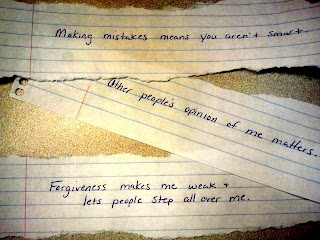 Making mistakes means you aren't smart.
Other people's opinion of me matters.
Forgiveness makes me weak +
lets people step all over me.